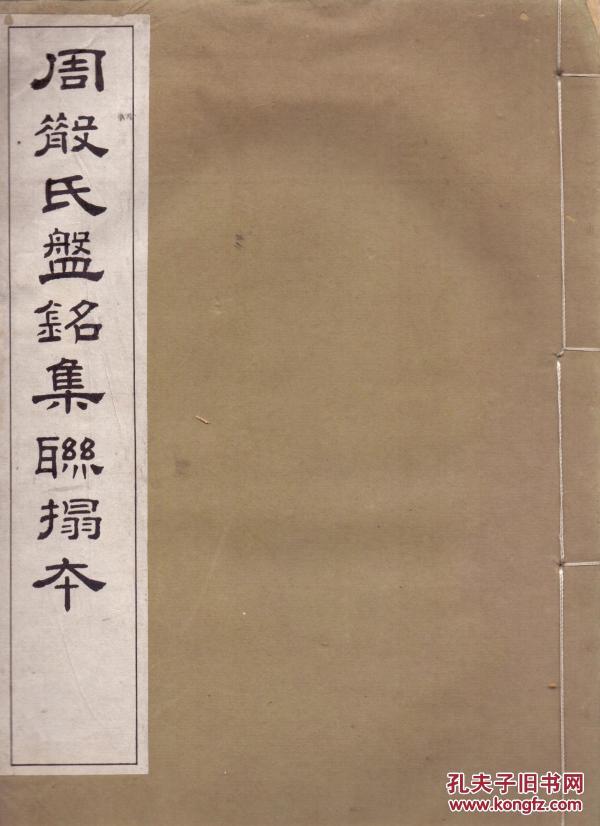 周散氏盤銘集聯搨本
孔夫子旧书网
www.kongfz.com